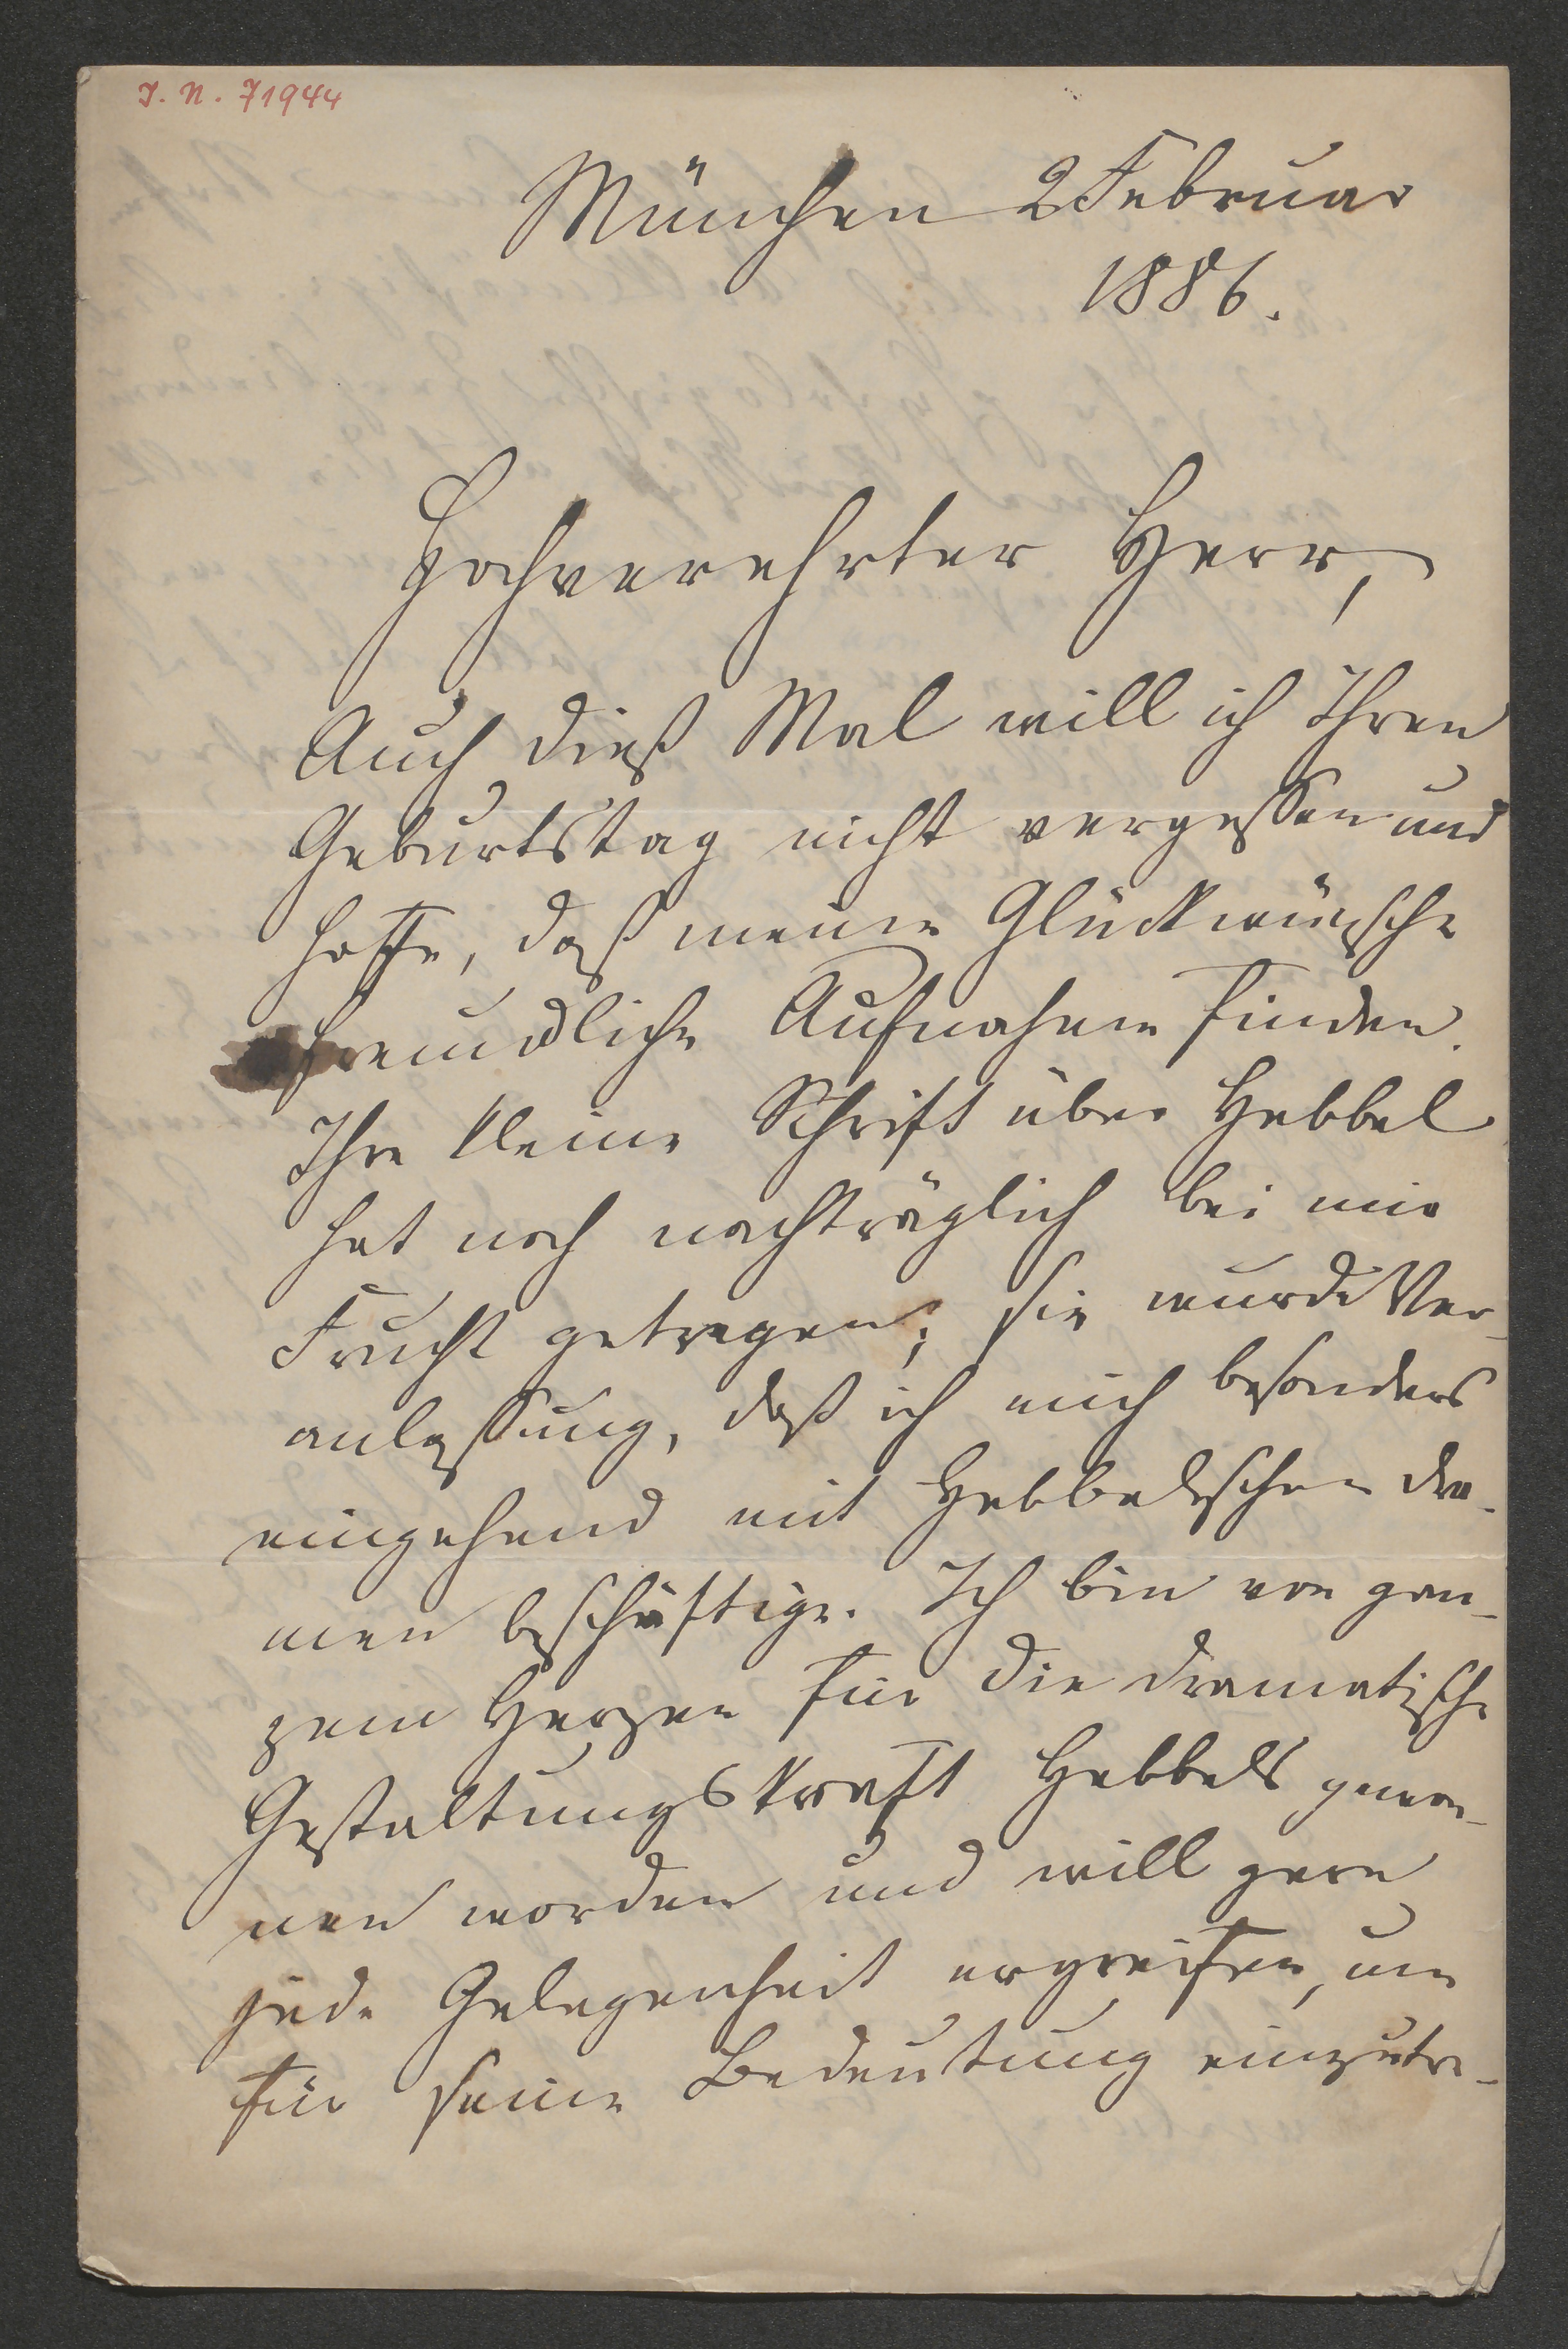 I. N. 71944
München 2 Februar
1886.
Hochverehrter Herr,
Auch dieß Mal will ich Ihren
Geburtstag nicht vergessen und
hoffe, daß meine Glückwünsche
freundliche Aufnahme finden.
Ihre kleine Schrift über Hebbel
hat noch nachträglich bei mir
Frucht getragen; sie wurde Ver-
anlassung, daß ich mich besonders
eingehend mit Hebbelschen Dra-
men beschäftige. Ich bin von gan-
zem Herzen für die dramatische
Gestaltungskraft Hebbels gewon-
nen worden und will gern
jede Gelegenheit ergreifen, um
für seine Bedeutung einzutre-